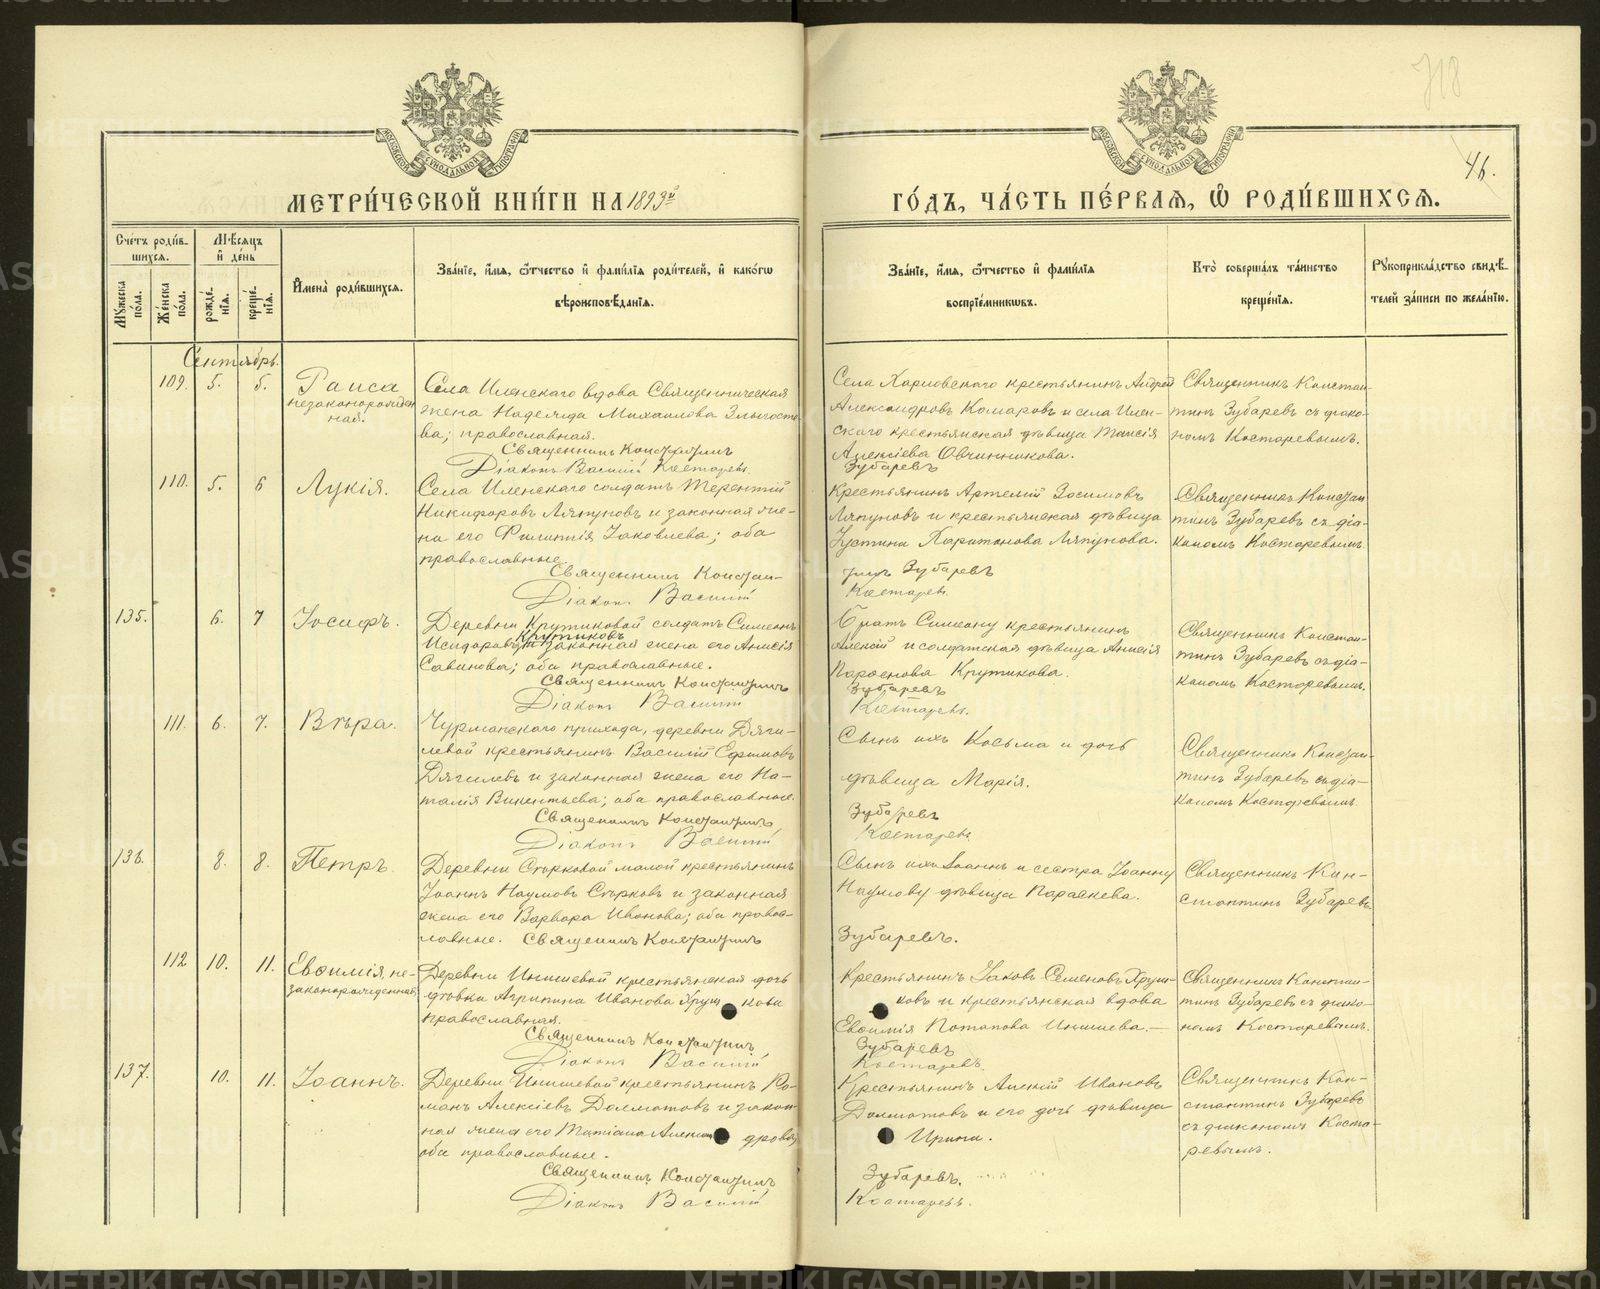 718
46.
МЕТРИ́ЧЕСКОЙ КНИ́ГИ НА 1893й
ГО́ДЪ, ЧА́СТЬ ПЕ́РВАѦ, Ѽ РОДИ́ВШИХСѦ.
Сче́тъ роди́в-
шихсѧ.
Мꙋ́жеска по́ла.
Же́нска по́ла.
Мѣ́сѧцъ и҆ де́нь
рожде́-нїѧ.
креще́-нїѧ.
И҆мена̀ роди́вшихсѧ.
Зва́нїе, и҆́мѧ, ѻ҆́тчество и҆ фами́лїѧ роди́телей, и҆ како́гѡ
вѣроисповѣ́данїѧ.
Зва́нїе, и҆́мѧ, ѻ҆́тчество и҆ фами́лїѧ
воспрїе́мникѡвъ.
Кто̀ соверша́лъ та́инство
креще́нїѧ.
Рꙋкоприкла́дство свидѣ́-
телей за́писи по жела́нїю.
Сентябрь.
109. 5. 5.
Раиса
незаконорожден
ная.
Села Иленскаго вдова Священническая
жена Надежда Михаилова Злыгосте
ва; православная.
Священникъ Константинъ
Діаконъ Василій Костаревъ.
Села Харловскаго крестьянинъ Андрей
Александровъ Комаровъ и села Илен-
скаго крестьянская дѣвица Таисія
Алексіева Овчинникова.
Зубаревъ
Священникъ Констан-
тинъ Зубаревъ съ діако-
номъ Костаревымъ.
110. 5. 6
Лукія.
Села Иленскаго солдатъ Терентій
Никифоровъ Ляпуновъ и законная же-
на его Филиппія Іаковлева; оба
православные.
Священникъ Констан-
Діаконъ Василій
Крестьянинъ Артемій Зосимовъ
Ляпуновъ и крестьянская дѣвица
Іустина Харитонова Ляпунова.
тинъ Зубаревъ
Костаревъ.
Священникъ Констан
тинъ Зубаревъ съ діа-
кономъ Костаревымъ.
135. 6. 7
Іосифъ.
Деревни Крутиковой солдатъ Симеонъ
Крутиковъ
Исидоровъ и законная жена его Анисія
Савинова; оба православные.
Священникъ Константинъ
Діаконъ Василій
Братъ Симеону крестьянинъ
Алексій и солдатская дѣвица Анисія
Парѳенова Крутикова.
Зубаревъ
Костаревъ.
Священникъ Констан-
тинъ Зубаревъ съ діа-
кономъ Костаревымъ.
111. 6. 7.
Вѣра.
Чурманскаго прихода, деревни Дяги-
левой крестьянинъ Василій Ефимовъ
Дягилевъ и законная жена его На-
талія Викентьева; оба православные.
Священникъ Константинъ
Діаконъ Василій
Сынъ ихъ Косьма и дочь
дѣвица Марія.
Зубаревъ
Костаревъ.
Священникъ Констан-
тинъ Зубаревъ съ діа-
кономъ Костаревымъ.
136. 8. 8.
Петръ.
Деревни Сѣрковой малой крестьянинъ
Іоаннъ Наумовъ Сѣрковъ и законная
жена его Варвара Иванова; оба право-
славные. Священникъ Константинъ
Сынъ ихъ Іоаннъ и сестра Іоанну
Наумову дѣвица Параскева.
Зубаревъ.
Священникъ Кон-
стантинъ Зубаревъ.
112 10. 11.
Евѳимія, не-
законорожденная.
Деревни Инишевой крестьянская дочь
дѣвка Агрипина Иванова Хрущ кова
православная.
Священникъ Константинъ
Діаконъ Василій
Крестьянинъ Іаковъ Семеновъ Хрущ-
ковъ и крестьянская вдова
Евѳимія Потапова Инишева.—
Зубаревъ
Костаревъ.
Священникъ Констан-
тинъ Зубаревъ съ діако-
номъ Костаревымъ.
137. 10. 11.
Іоаннъ.
Деревни Инишевой крестьянинъ Ро-
манъ Алексіевъ Долматовъ и закон-
ная жена его Татіана Алексан дрова;
оба православные.
Священникъ Константинъ
Діаконъ Василій
Крестьянинъ Алексій Ивановъ
Долматовъ и его дочь дѣвица
Ирина.
Зубаревъ.
Костаревъ.
Священникъ Кон-
стантинъ Зубаревъ
съ діакономъ Коста-
ревымъ.